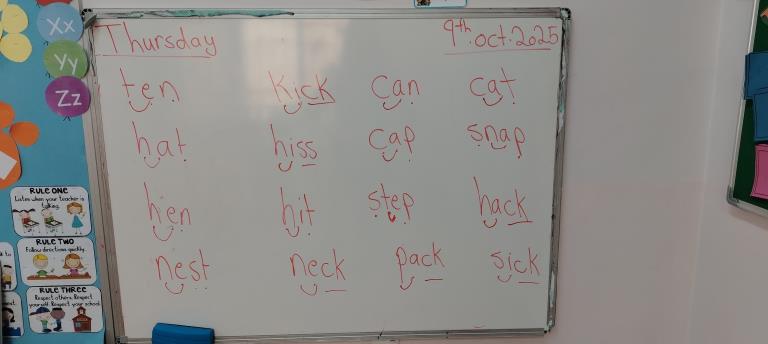 Thursday 9th.oct.2025
ten kick can cat
hat hiss cap snap
hen hit step hack
nest neck pack sick
Xx
Yy
Zz
RULE ONE
Listen when your teacher is
talking.
RULE TWO
Follow directions quickly.
RULE THREE
Respect others. Respect
yourself. Respect your school.